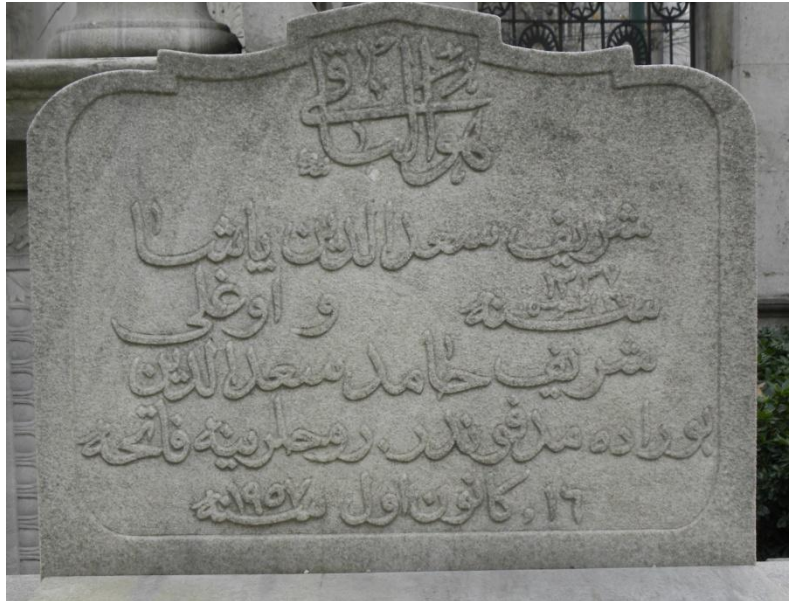 هو الباقی
شریف سعد الدین پاشا
سنه ١٣٣٧ و اوغلی
شریف حامد سعد الدین
بوراده مدفوندر. روحلرینه فاتحه
١٦، کانون اول سنه ١٩٥٧